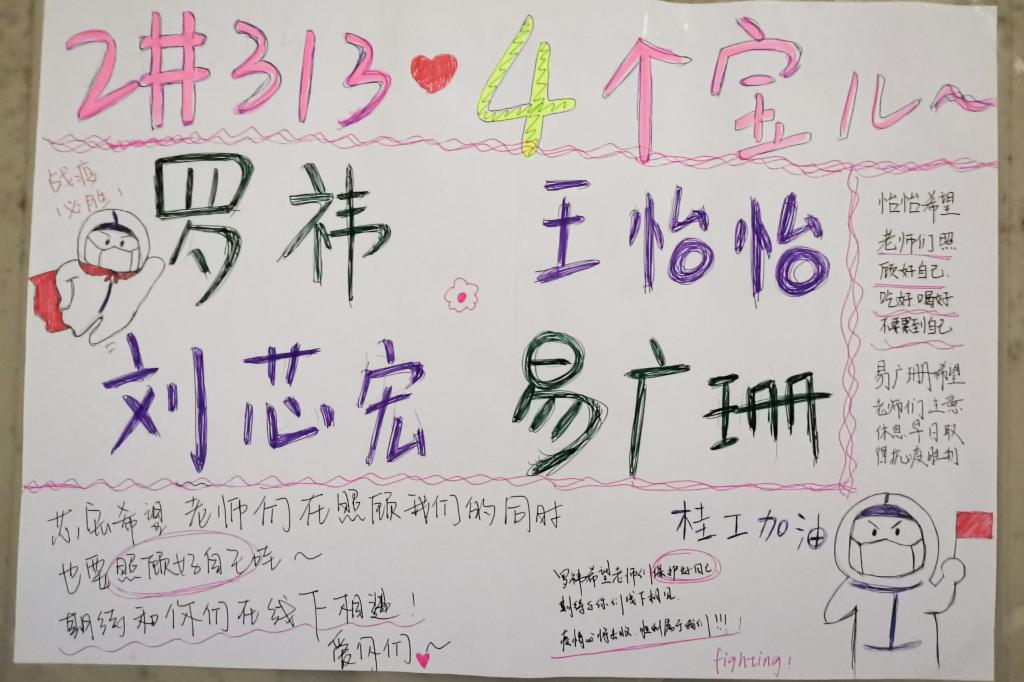 2#313 4个宝儿~
战疫
必胜!
罗祎 王怡怡
刘芯宏 易广珊
怡怡希望
老师们照
顾好自己
吃好喝好
不要累到自己
易广珊希望
老师们注意
休息早日取
得抗疫胜利
芯宏希望老师们在照顾我们的同时
也要照顾好自己哇~
期待和你们在线下相遇!
爱你们~
桂工加油
罗祎希望老师们保护好自己
期待与你们线下相见
疫情必将击败,胜利属于我们!!!
fighting!